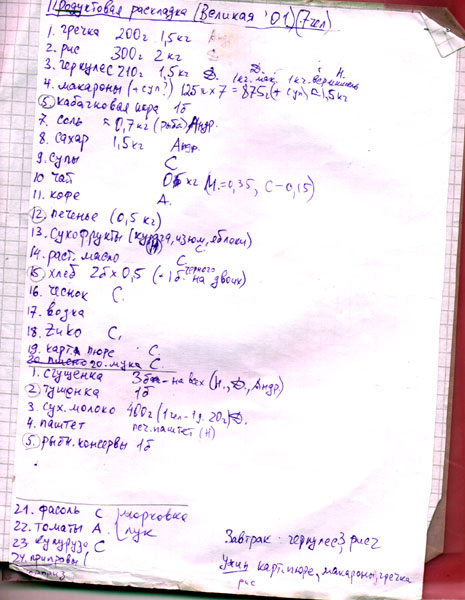 Продуктовая раскладка (Великая '01) (7чел)
1. гречка 200г 1,5 кг
2. рис 300г 2 кг S.
3. геркулес 210г 1,5 кг D. D. Н.
1кг. мак. 1кг. вермишель
4. макароны (+ суп?) 125г x 7 = 875г (+ суп) = 1,5кг
5. кабачковая икра 1б
7. соль ≈ 0,7 кг (рыба) Андр.
8. сахар 1,5 кг Андр.
9. супы С
10. чай кг (М.=0,35, С-0,15)
11. кофе А.
12. печенье (0,5 кг)
13. сухофрукты (курага, изюм, яблоки)
14. раст. масло С.
15. хлеб 2б x 0,5 (-1б черного на двоих)
16. чеснок С.
17. водка
18. Zuko С,
19. карт. пюре С
20. мука С
1. сгущенка 3б - на всех (Н., D, Андр)
2. тушенка 1б
3. сух. молоко 400г (1чел-1д. 20г) D.
4. паштет печ. паштет (Н)
5. рыбн. консервы 1б
21. фасоль С морковка
22. томаты А. лук
23 кукуруза С
24. приправы
Завтрак: геркулес 3, рис 2
Ужин карт. пюре, макароны, гречка
рис